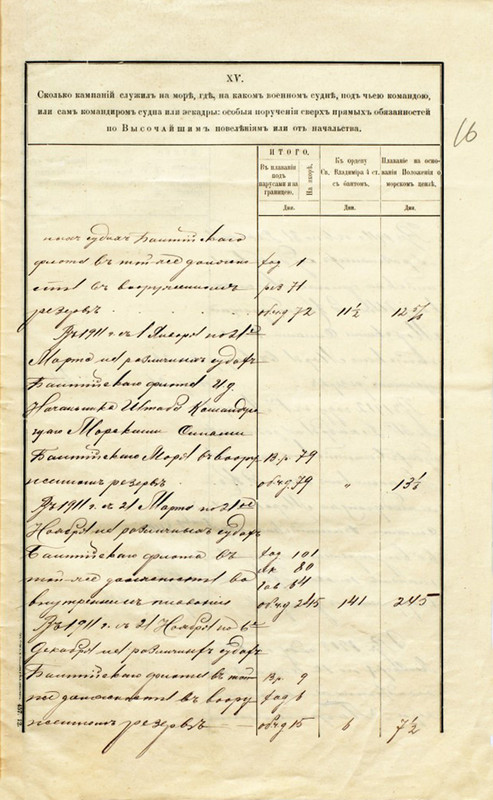 XV.
Сколько кампаній служилъ на морѣ, гдѣ, на какомъ военномъ суднѣ, подъ чьею командою,
или самъ командиромъ судна или эскадры: особыя порученія сверхъ прямыхъ обязанностей
по Высочайшимъ повелѣніямъ или отъ начальства.
16
ИТОГО.
Въ плаваніи подъ парусами и за границею.
На якорѣ.
Къ ордену Св. Владиміра 4 ст. съ бантомъ.
Плаваніе на основаніи Положенія о морскомъ цензѣ.
Дни.
Дни.
Дни.
судахъ Балтійскаго
флота въ той-же должно- 1
сти въ вооруженномъ рез 71
резервѣ . . . общ 72 11½
Въ 1911 г. съ 1 Января по 21ое
Марта на различныхъ судахъ
Балтійскаго флота И д.
Начальника Штаба Командую-
щаго Морскими Силами
Балтійскаго Моря въ воору- В.р. 79
женномъ резервѣ . общ 79 „ 13½
Въ 1911 г. съ 21 Марта по 21ое
Ноября на различныхъ судахъ
Балтійскаго флота въ 101
той-же должности во як 80
64
внутреннемъ плаваніи общ 245 141 245
Въ 1911 г. съ 21 Ноября по 6е
Декабря на различныхъ судахъ
Балтійскаго флота въ той В.р. 9
же должности въ воору- 6
женномъ резервѣ общ 15 6 7½